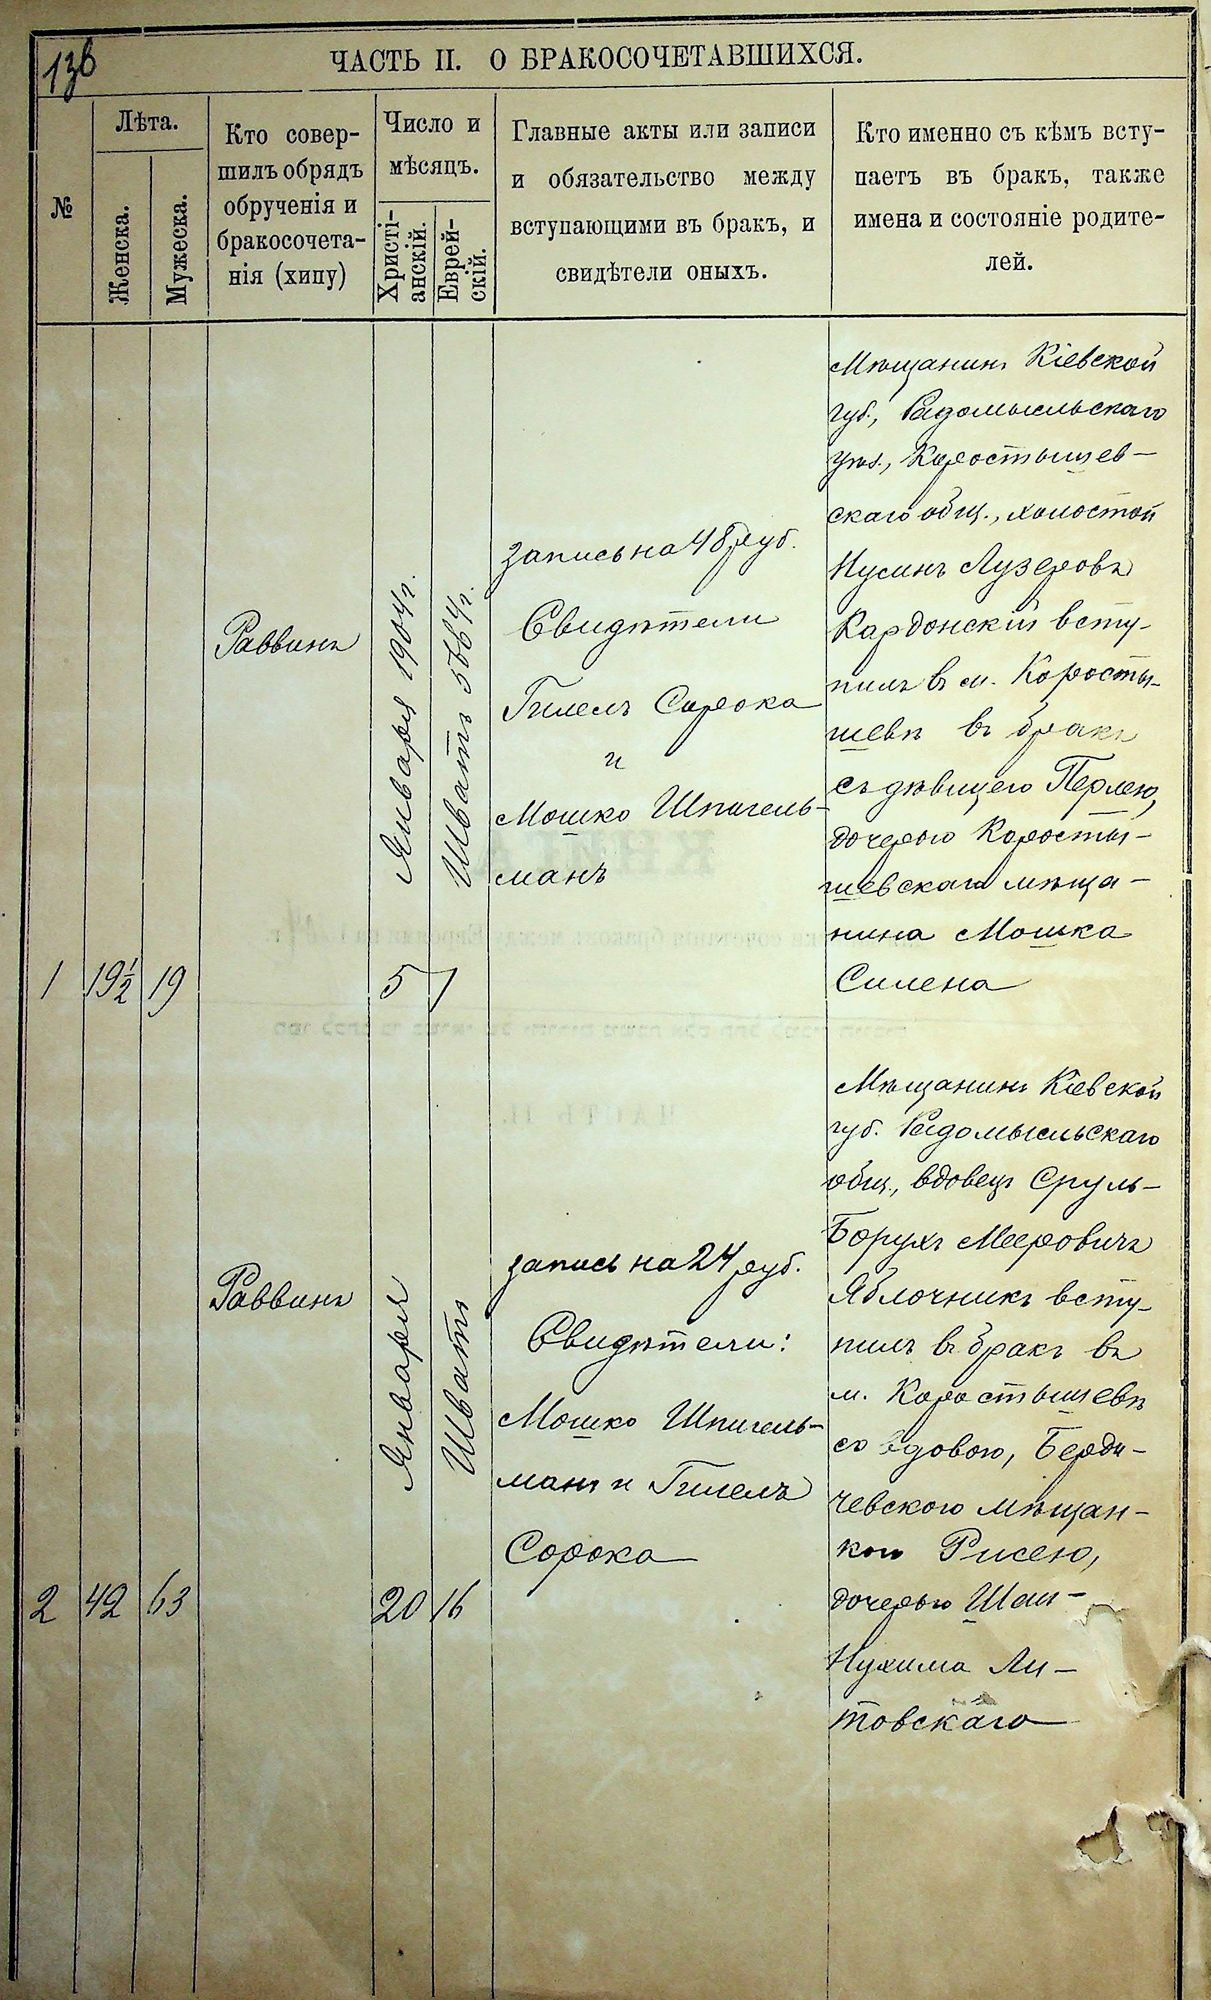 136
ЧАСТЬ II. О БРАКОСОЧЕТАВШИХСЯ.
№
Лѣта.
Женска.
Мужеска.
Кто совер-
шилъ обрядъ
обрученія и
бракосочета-
нія (хипу)
Число и
мѣсяцъ.
Христі-
анскій.
Еврей-
скій.
Главные акты или записи
и обязательство между
вступающими въ бракъ, и
свидѣтели оныхъ.
Кто именно съ кѣмъ всту-
паетъ въ бракъ, также
имена и состояніе родите-
лей.
1
19½
19
Раввинъ
Января 1904 г.
5
Шватъ 5664 г.
1
запись на 48 руб.
Свидѣтели
Гилелъ Сорока
и
Мошко Шпигель-
манъ
Мѣщанинъ Кіевской
губ., Радомысльскаго
уѣз., Коростышев-
скаго общ., холостой
Нусинъ Лузеровъ
Кардонскій всту-
пилъ въ м. Коросты-
шевѣ въ бракъ
съ дѣвицею Перлею,
дочерью Коросты-
шевскаго мѣща-
нина Мошка
Силена
2
42
63
Раввинъ
Января
20
Шватъ
16
запись на 24 руб.
Свидѣтели:
Мошко Шпигель-
манъ и Гилелъ
Сорока
Мѣщанинъ Кіевской
губ. Радомысльскаго
общ., вдовецъ Сруль-
Борухъ Мееровичъ
Яблочникъ всту-
пилъ въ бракъ въ
м. Коростышевѣ
со вдовою, Берди-
чевскою мѣщан-
кою Рисею,
дочерью Шаи-
Нухима Ли-
товскаго